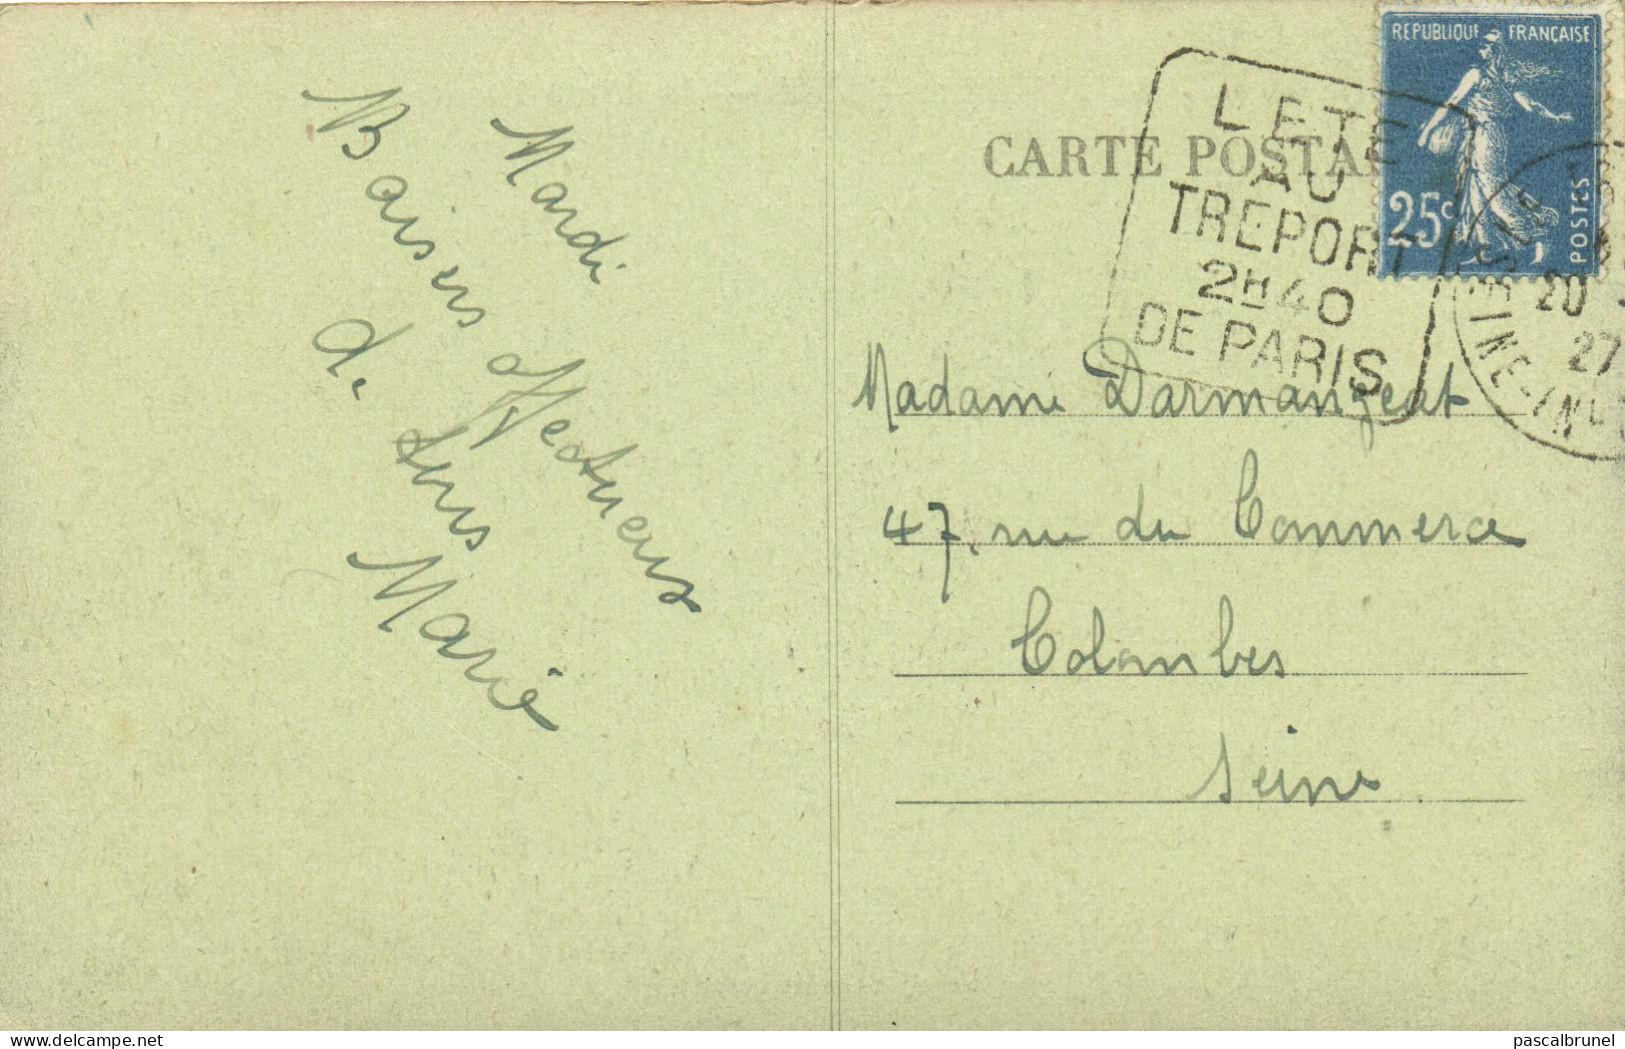 Mardi
Baisers affectueux
de tous
Marie
CARTE POSTA
REPUBLIQUE FRANÇAISE
25c
POSTES
L ETE
AU
TREPORT
2H40
DE PARIS
20
27
SEINE-INF
Madame Darmangeat
47, rue du Commerce
Colombes
Seine
delcampe.net
pascalbrunel